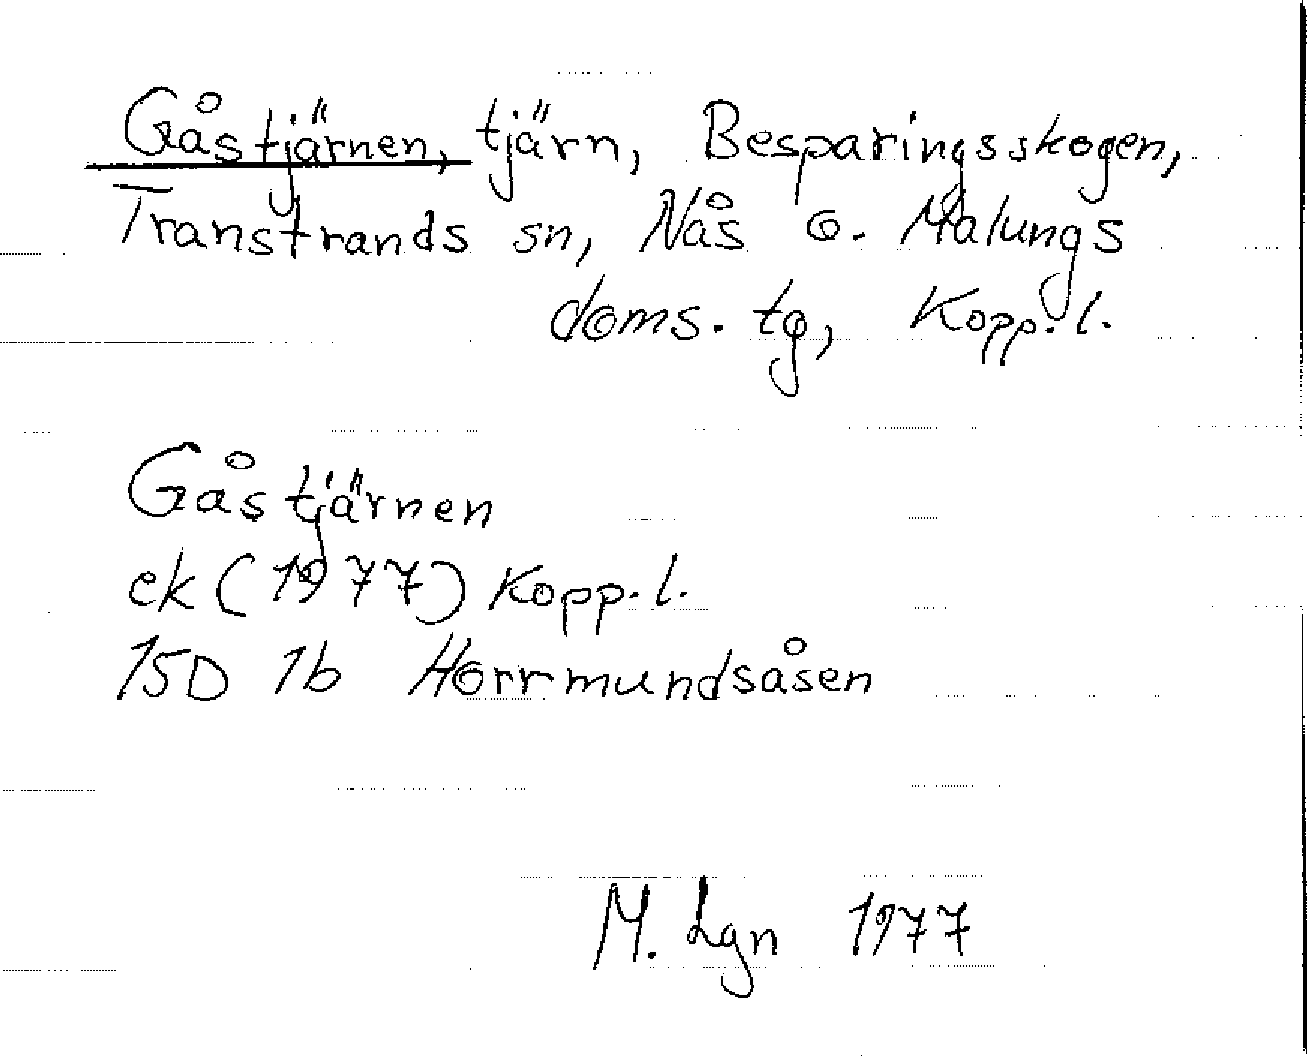 Gåstjärnen, tjärn, Besparingsskogen,
Transtrands sn, Nås o. Malungs
doms. tg, Kopp. l.
Gåstjärnen
ek (1977) Kopp. l.
15D 1b Horrmundsåsen
M. Lgn 1977